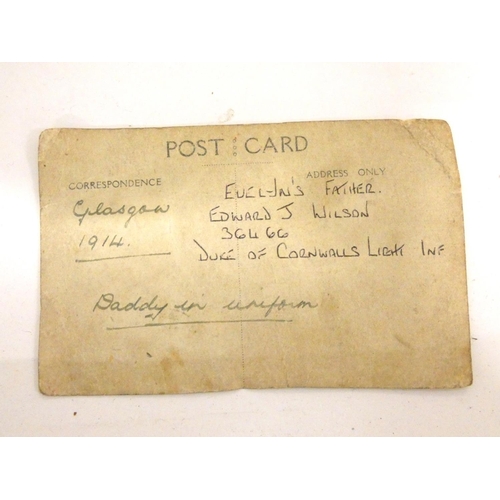 POST CARD
CORRESPONDENCE
ADDRESS ONLY
Glasgow
1914.
Daddy in uniform
EVELYN'S FATHER.
EDWARD J WILSON
36466
DUKE OF CORNWALLS LIGHT INF